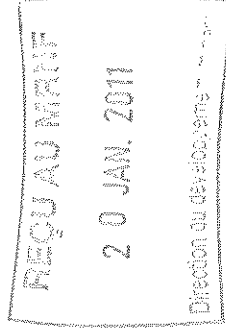 REÇU AU MRNF
20 JAN. 2011
Direction du développement